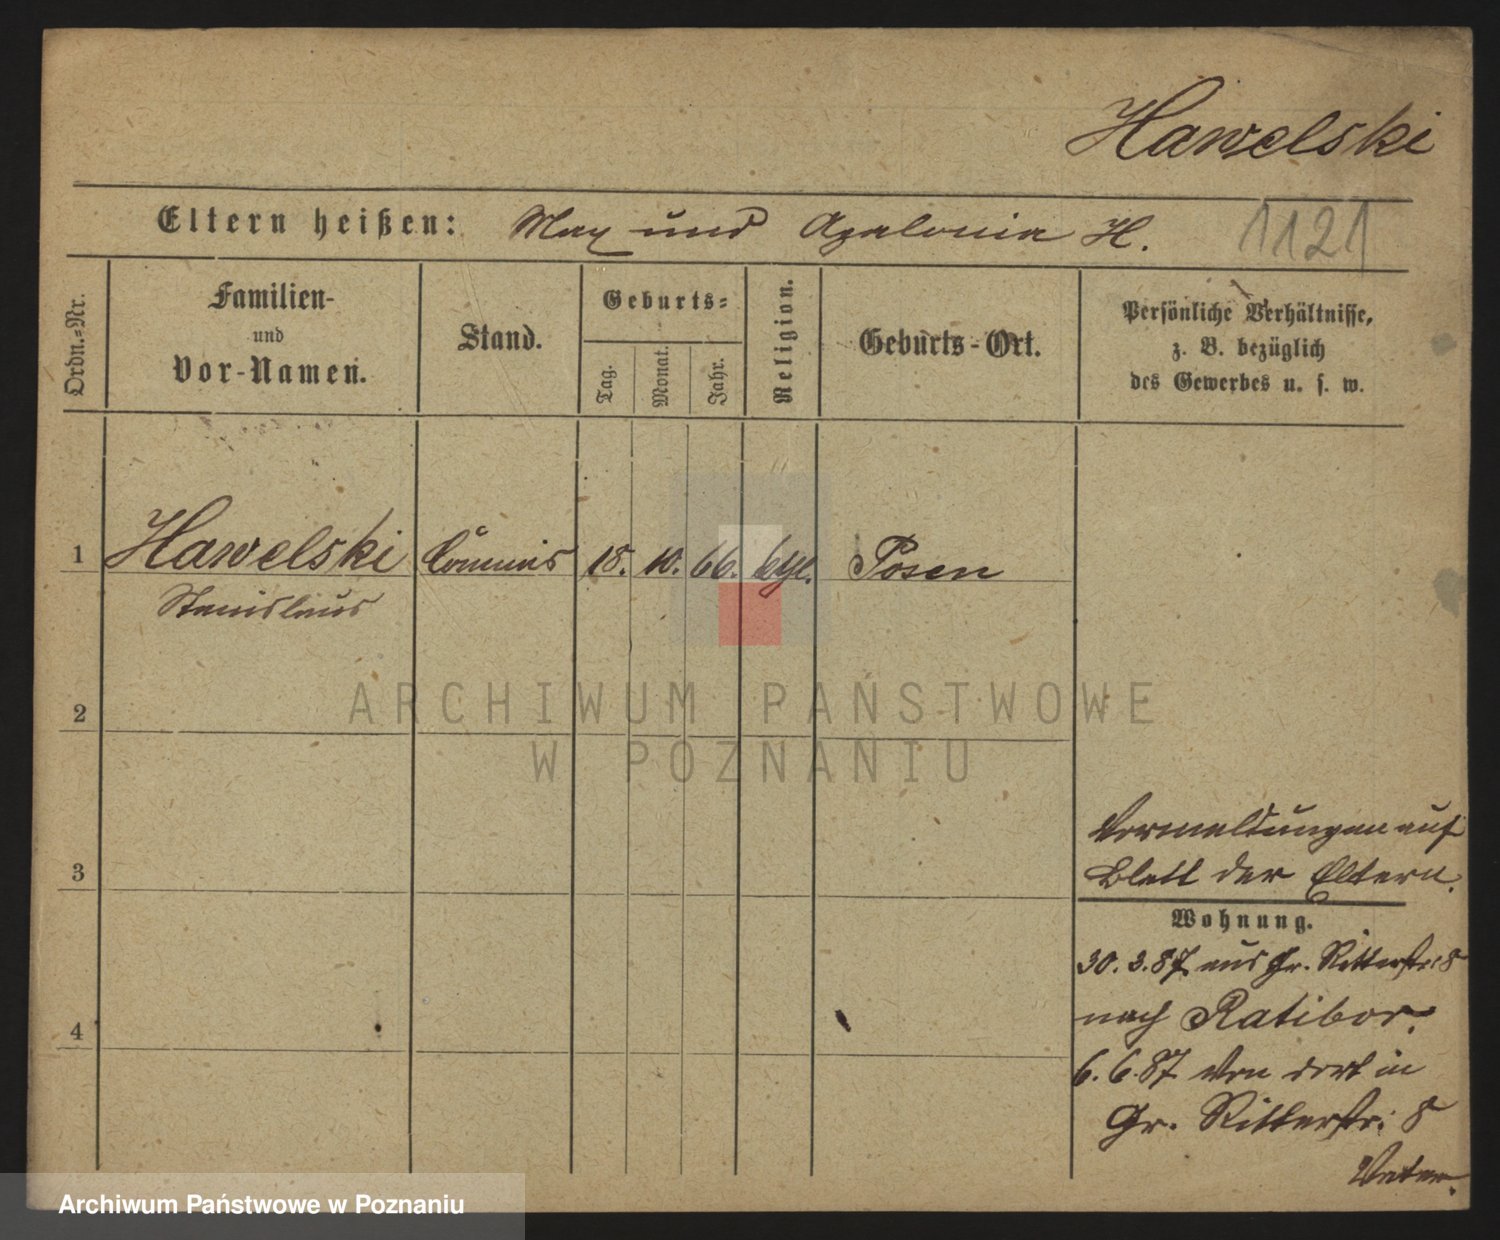 Hawelski
Eltern heißen: Max und Apalonia H. 1121
Ordn.-Nr.
Familien-
und
Vor-Namen.
Stand.
Geburts=
Tag.
Monat.
Jahr.
Religion.
Geburts-Ort.
Persönliche Verhältnisse,
z. B. bezüglich
des Gewerbes u. s. w.
1 Hawelski Commis 18. 10. 66. ktl. Posen
Stanislaus
2
ARCHIWUM PAŃSTWOWE
W POZNANIU
3
4
Vormeldungen auf
Blatt der Eltern.
Wohnung.
30. 3. 87 aus Gr. Ritterstr. 8
nach Ratibor.
6. 6. 87 von dort in
Gr. Ritterstr. 8
Vater.
Archiwum Państwowe w Poznaniu